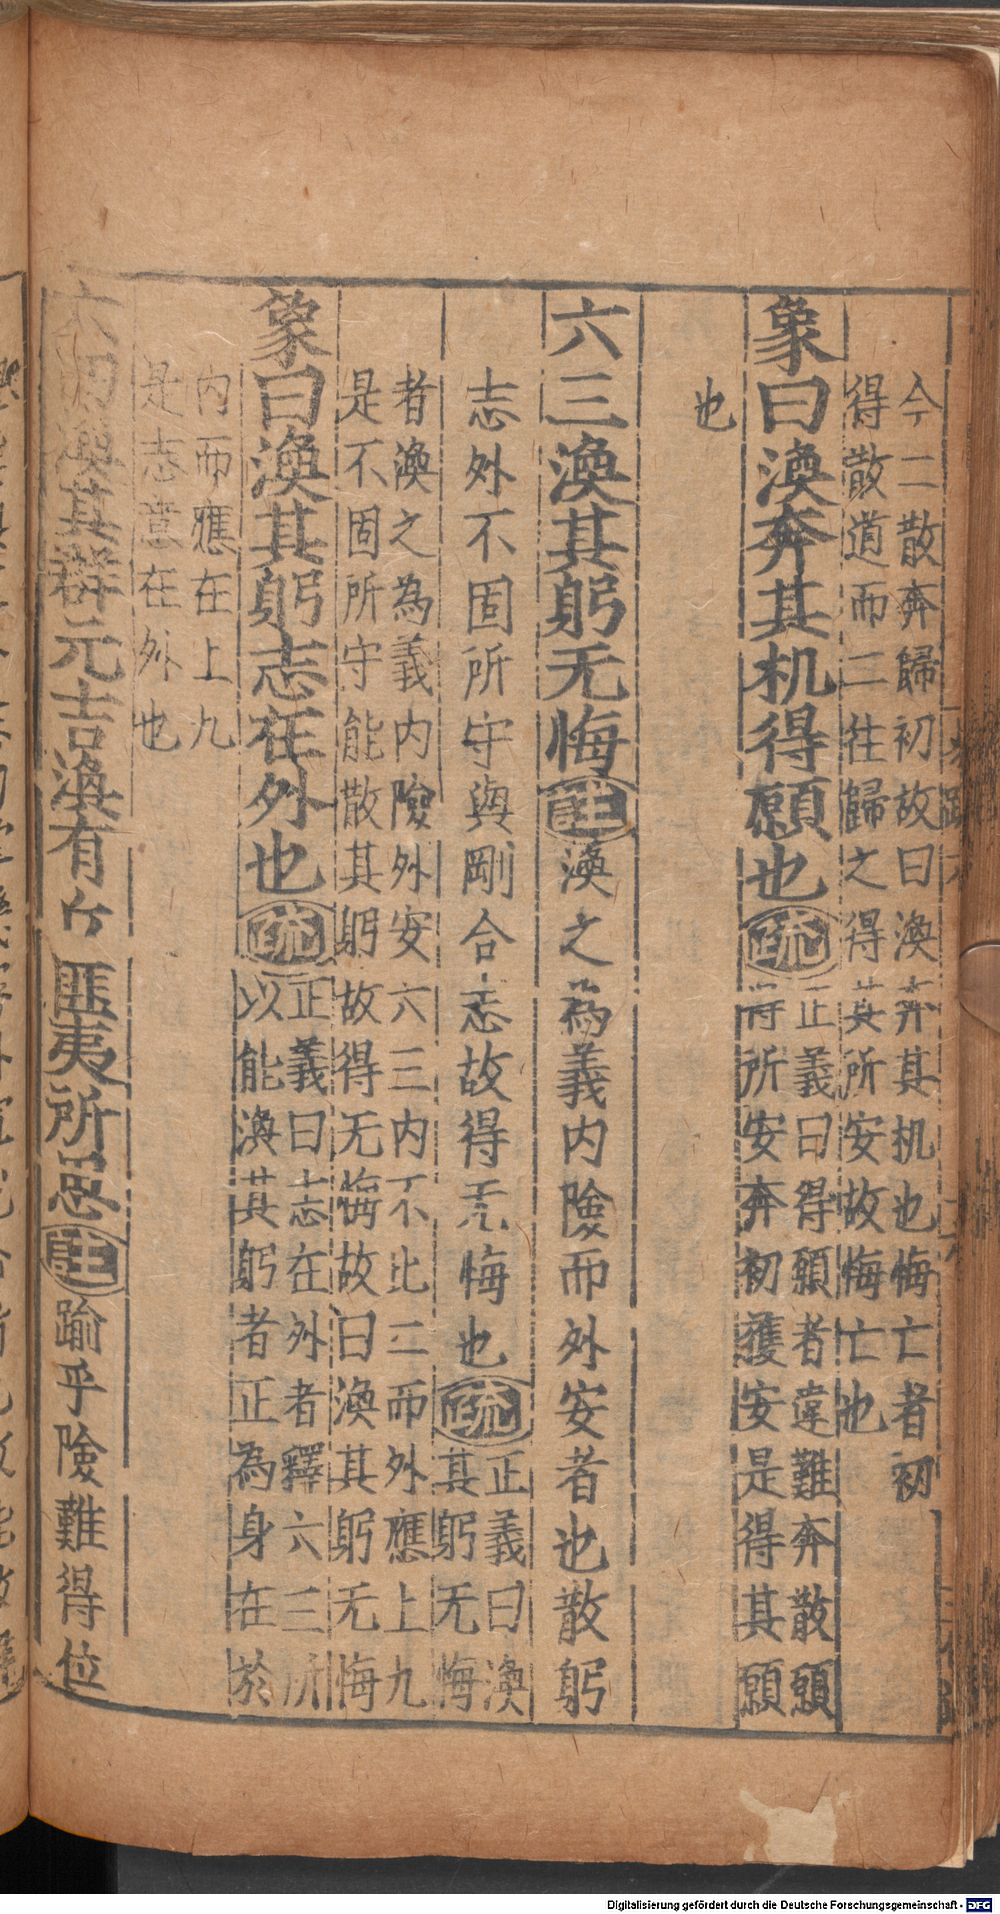 今二散奔歸初故曰渙奔其机也悔亡者初
得散道而二往歸之得其所安故悔亡也
象曰渙奔其机得願也疏正義曰得願者違難奔散願
得所安奔初獲安是得其願
也
六三渙其躬无悔註渙之為義內險而外安者也散躬
志外不固所守與剛合志故得无悔也疏正義曰渙
其躬无悔
者渙之為義內險外安六三內不比二而外應上九
是不固所守能散其躬故得无悔故曰渙其躬无悔
象曰渙其躬志在外也疏正義曰志在外者釋六三所
以能渙其躬者正為身在於
內而應在上九
是志意在外也
六四渙其群元吉渙有丘匪夷所思註踰乎險難得位
Digitalisierung gefördert durch die Deutsche Forschungsgemeinschaft - DFG